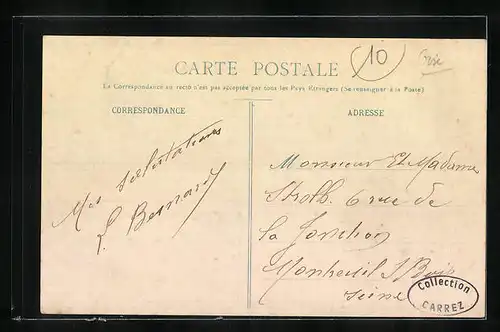 10
CARTE POSTALE
La Correspondance au recto n'est pas acceptée par tous les Pays Étrangers (Se renseigner à la Poste)
CORRESPONDANCE
ADRESSE
Mes salutations
L. Bernard
Monsieur Et Madame
Stroth. 6 rue de
la Jonction
Montreuil S/Bois
Seine
Collection
CARREZ